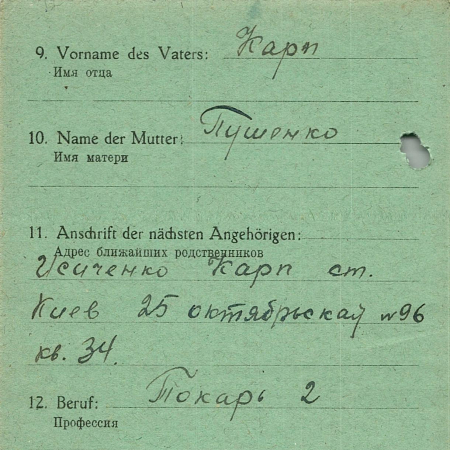 9. Vorname des Vaters: Карп
Имя отца
10. Name der Mutter: Пушенко
Имя матери
11. Anschrift der nächsten Angehörigen:
Адрес ближайших родственников
Исиченко Карп ст.
Киев 25 октябрьская №96
кв. 34.
12. Beruf: Токарь 2
Профессия